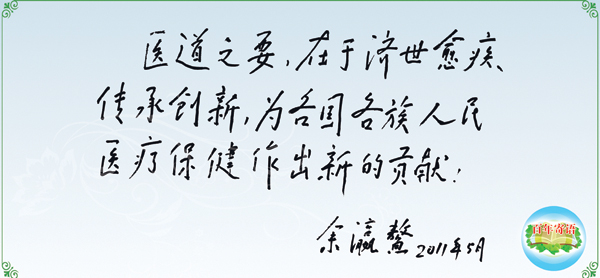 医道之要,在于济世愈疾、
传承创新,为各国各族人民
医疗保健作出新的贡献!
余瀛鳌 2011年5月
百年寄语